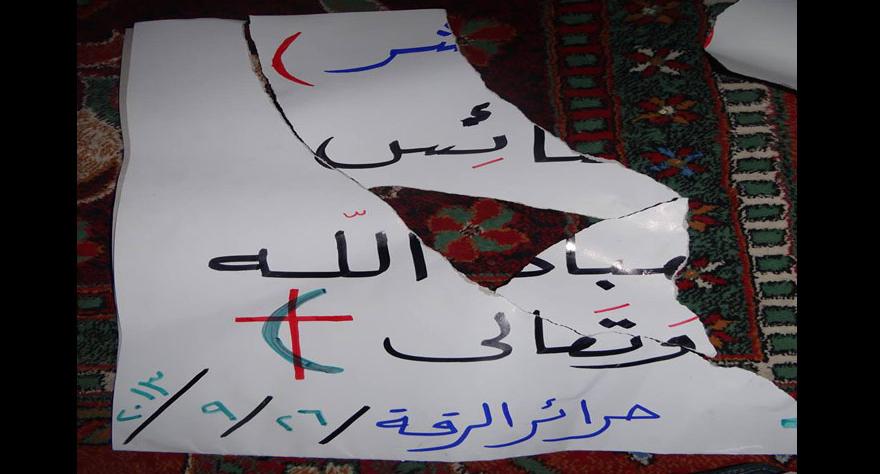 ـشر (
ـائِس
عباد اللّه
وَتَعالى
حرائر الرقة / ٢٦ / ٩ / ٢٠١٣